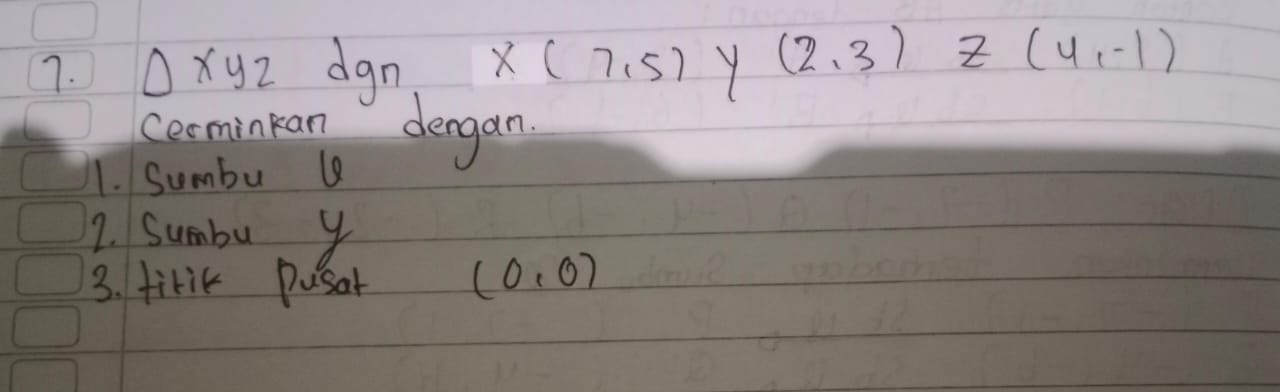 7. Δ XYZ dgn X (7,5) Y (2,3) Z (4,-1)
Cerminkan dengan.
1. Sumbu
2. Sumbu y
3. titik Pusat (0,0)